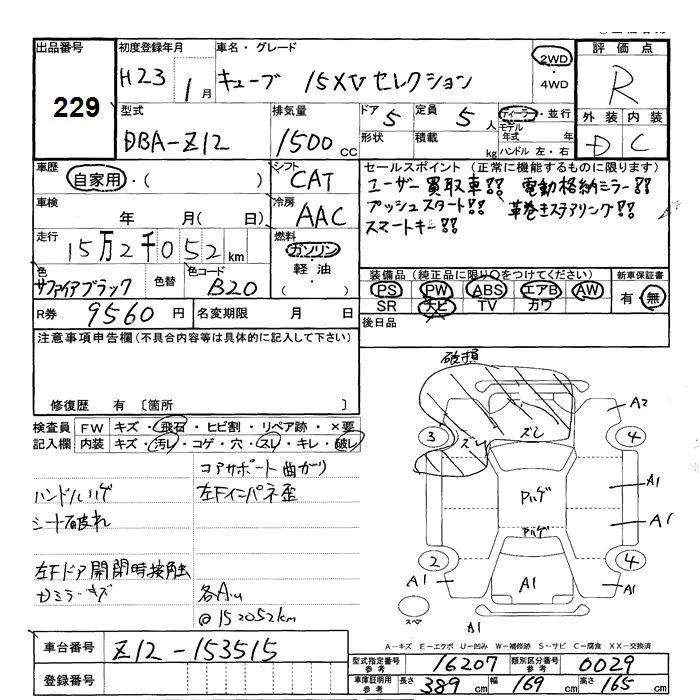 出品番号 初度登録年月 車名・グレード 評価点
229 H23 1月 キューブ 15XVセレクション 2WD・4WD R
型式 排気量 ドア 5 定員 5人 ディーラー・並行 外装 内装
DBA-Z12 1500cc 形状 積載 kg モデル年式 年 ハンドル 左・右 D C
車歴 自家用・( ) シフト CAT セールスポイント (正常に機能するものに限ります)
車検 年 月(日) 冷房 AAC ユーザー買取車!! 電動格納ミラー!!
プッシュスタート!! 革巻きステアリング!!
スマートキー!!
走行 15万2千052km 燃料 ガソリン・軽油・( )
色 サファイアブラック 色替 色コード B20
装備品 (純正品に限り○をつけてください) 新車保証書
PS PW ABS エアB AW 有・無
SR ナビ TV カワ
R券 9560円 名変期限 月 日 後日品
注意事項申告欄(不具合内容等は具体的に記入して下さい)
修復歴 有 〔箇所 〕
検査員 FW キズ・飛石・ヒビ割・リペア跡・×要
記入欄 内装 キズ・汚レ・コゲ・穴・スレ・キレ・破レ
コアサポート曲がり
ハンドルハゲ 左Fインパネ歪
シート破れ
左Fドア開閉時接触
ドミラーキズ 各A.u
@152052km
破損
A2
3 ズレ ズレ 4
Pハゲ A1
Pハゲ A1
2 4
A1 A1 A1
スペア A1
車台番号 Z12-153515
A-キズ E-エクボ U-凹み W-補修跡 S-サビ C-腐食 XX-交換済
型式指定番号 参考 16207 類別区分番号 参考 0029
登録番号 車庫証明用 参考 長さ 389cm 幅 169cm 高さ 165cm